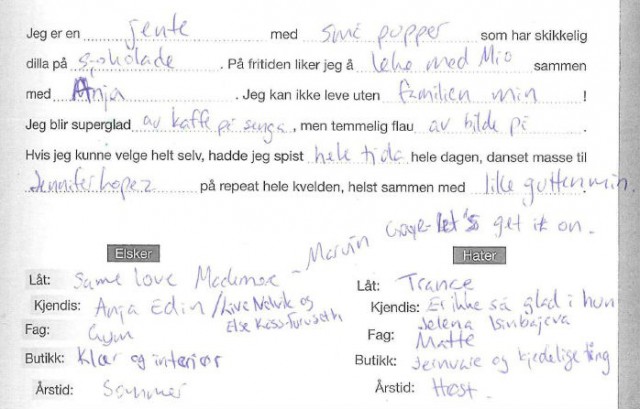 Jeg er en jente med små pupper som har skikkelig
dilla på sjokolade. På fritiden liker jeg å leke med Mio sammen
med Anja. Jeg kan ikke leve uten familien min!
Jeg blir superglad av kaffe på senga, men temmelig flau av bilde på.
Hvis jeg kunne velge helt selv, hadde jeg spist hele tida hele dagen, danset masse til
Jennifer Lopez på repeat hele kvelden, helst sammen med lille gutten min.
Marvin Gaye - let's get it on.
Elsker
Låt: Same love Mackmore
Kjendis: Anja Edin / Live Nelvik og
Else Kåss Furuseth
Fag: Gym
Butikk: Klær og interiør
Årstid: Sommer
Hater
Låt: Trance
Kjendis: Er ikke så glad i hun
Jelena Isinbajeva
Fag: Matte
Butikk: Jernvare og kjedelige ting
Årstid: Høst.